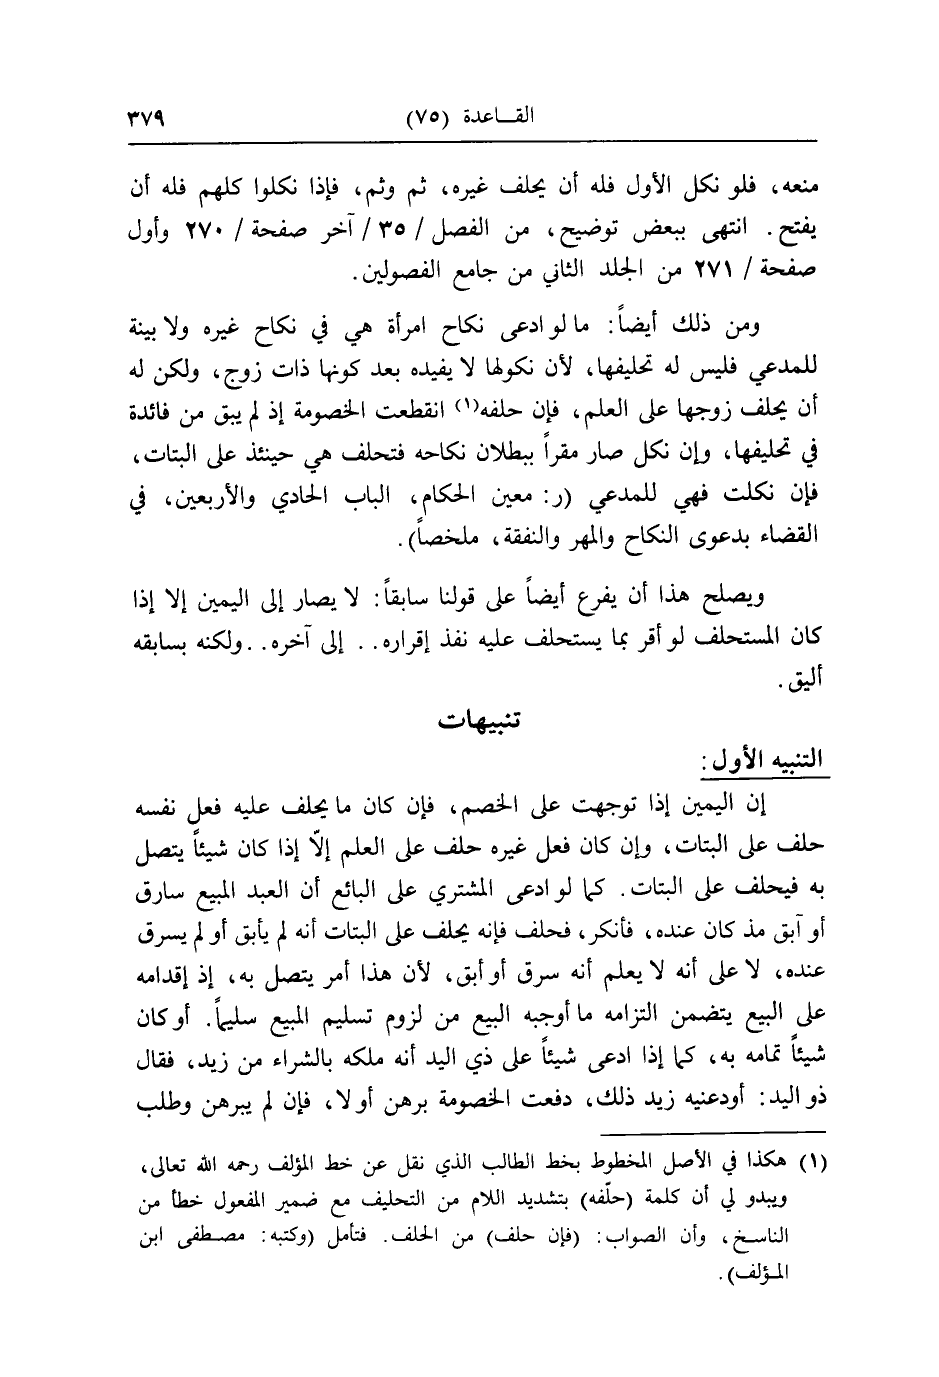 القــاعدة (٧٥) ٣٧٩
منعه، فلو نكل الأول فله أن يحلف غيره، ثم وثم، فإذا نكلوا كلهم فله أن
يفتح. انتهى ببعض توضيح، من الفصل / ٣٥ / آخر صفحة / ٢٧٠ وأول
صفحة / ٢٧١ من الجلد الثاني من جامع الفصولين.
ومن ذلك أيضاً: ما لو ادعى نكاح امرأة هي في نكاح غيره ولا بينة
للمدعي فليس له تحليفها، لأن نكولها لا يفيده بعد كونها ذات زوج، ولكن له
أن يحلف زوجها على العلم، فإن حلفه(١) انقطعت الخصومة إذ لم يبق من فائدة
في تحليفها، وإن نكل صار مقراً ببطلان نكاحه فتحلف هي حينئذ على البتات،
فإن نكلت فهي للمدعي (ر: معين الحكام، الباب الحادي والأربعين، في
القضاء بدعوى النكاح والمهر والنفقة، ملخصاً).
ويصلح هذا أن يفرع أيضاً على قولنا سابقاً: لا يصار إلى اليمين إلا إذا
كان المستحلف لو أقر بما يستحلف عليه نفذ إقراره.. إلى آخره.. ولكنه بسابقه
أليق.
تنبيهات
التنبيه الأول:
إن اليمين إذا توجهت على الخصم، فإن كان ما يحلف عليه فعل نفسه
حلف على البتات، وإن كان فعل غيره حلف على العلم إلّا إذا كان شيئاً يتصل
به فيحلف على البتات. كما لو ادعى المشتري على البائع أن العبد المبيع سارق
أو آبق مذ كان عنده، فأنكر، فحلف فإنه يحلف على البتات أنه لم يأبق أو لم يسرق
عنده، لا على أنه لا يعلم أنه سرق أو أبق، لأن هذا أمر يتصل به، إذ إقدامه
على البيع يتضمن التزامه ما أوجبه البيع من لزوم تسليم المبيع سليماً. أو كان
شيئاً تمامه به، كما إذا ادعى شيئاً على ذي اليد أنه ملكه بالشراء من زيد، فقال
ذو اليد: أودعنيه زيد ذلك، دفعت الخصومة برهن أو لا، فإن لم يبرهن وطلب
(١) هكذا في الأصل المخطوط بخط الطالب الذي نقل عن خط المؤلف رحمه الله تعالى،
ويبدو لي أن كلمة (حلّفه) بتشديد اللام من التحليف مع ضمير المفعول خطأ من
الناسخ، وأن الصواب: (فإن حلف) من الحلف. فتأمل (وكتبه: مصطفى ابن
المؤلف).